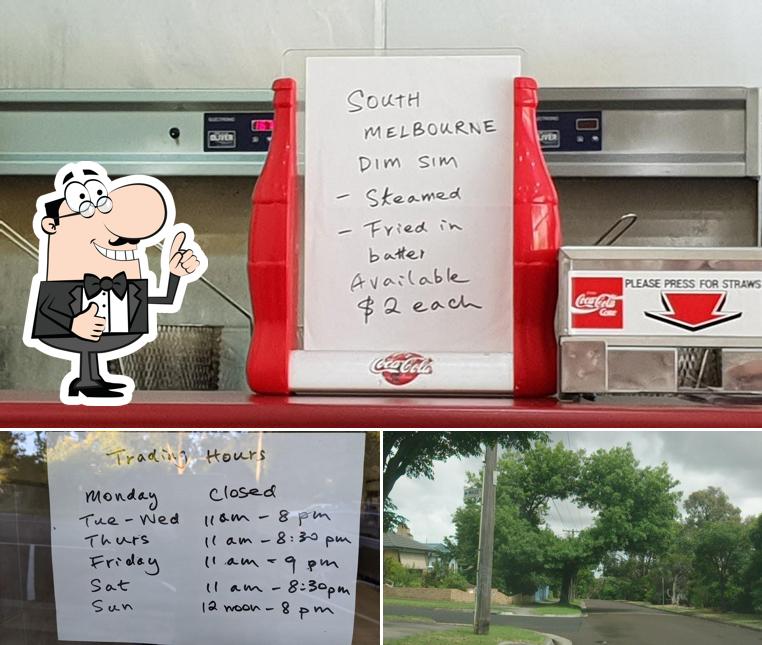 SOUTH
MELBOURNE
DIM SIM
- Steamed
- Fried in
batter
Available
$2 each
Coca-Cola
Coca-Cola
PLEASE PRESS FOR STRAWS
Trading Hours
Monday Closed
Tue - Wed 11am - 8 pm
Thurs 11 am - 8:30 pm
Friday 11 am - 9 pm
Sat 11 am - 8:30pm
Sun 12 noon - 8 pm